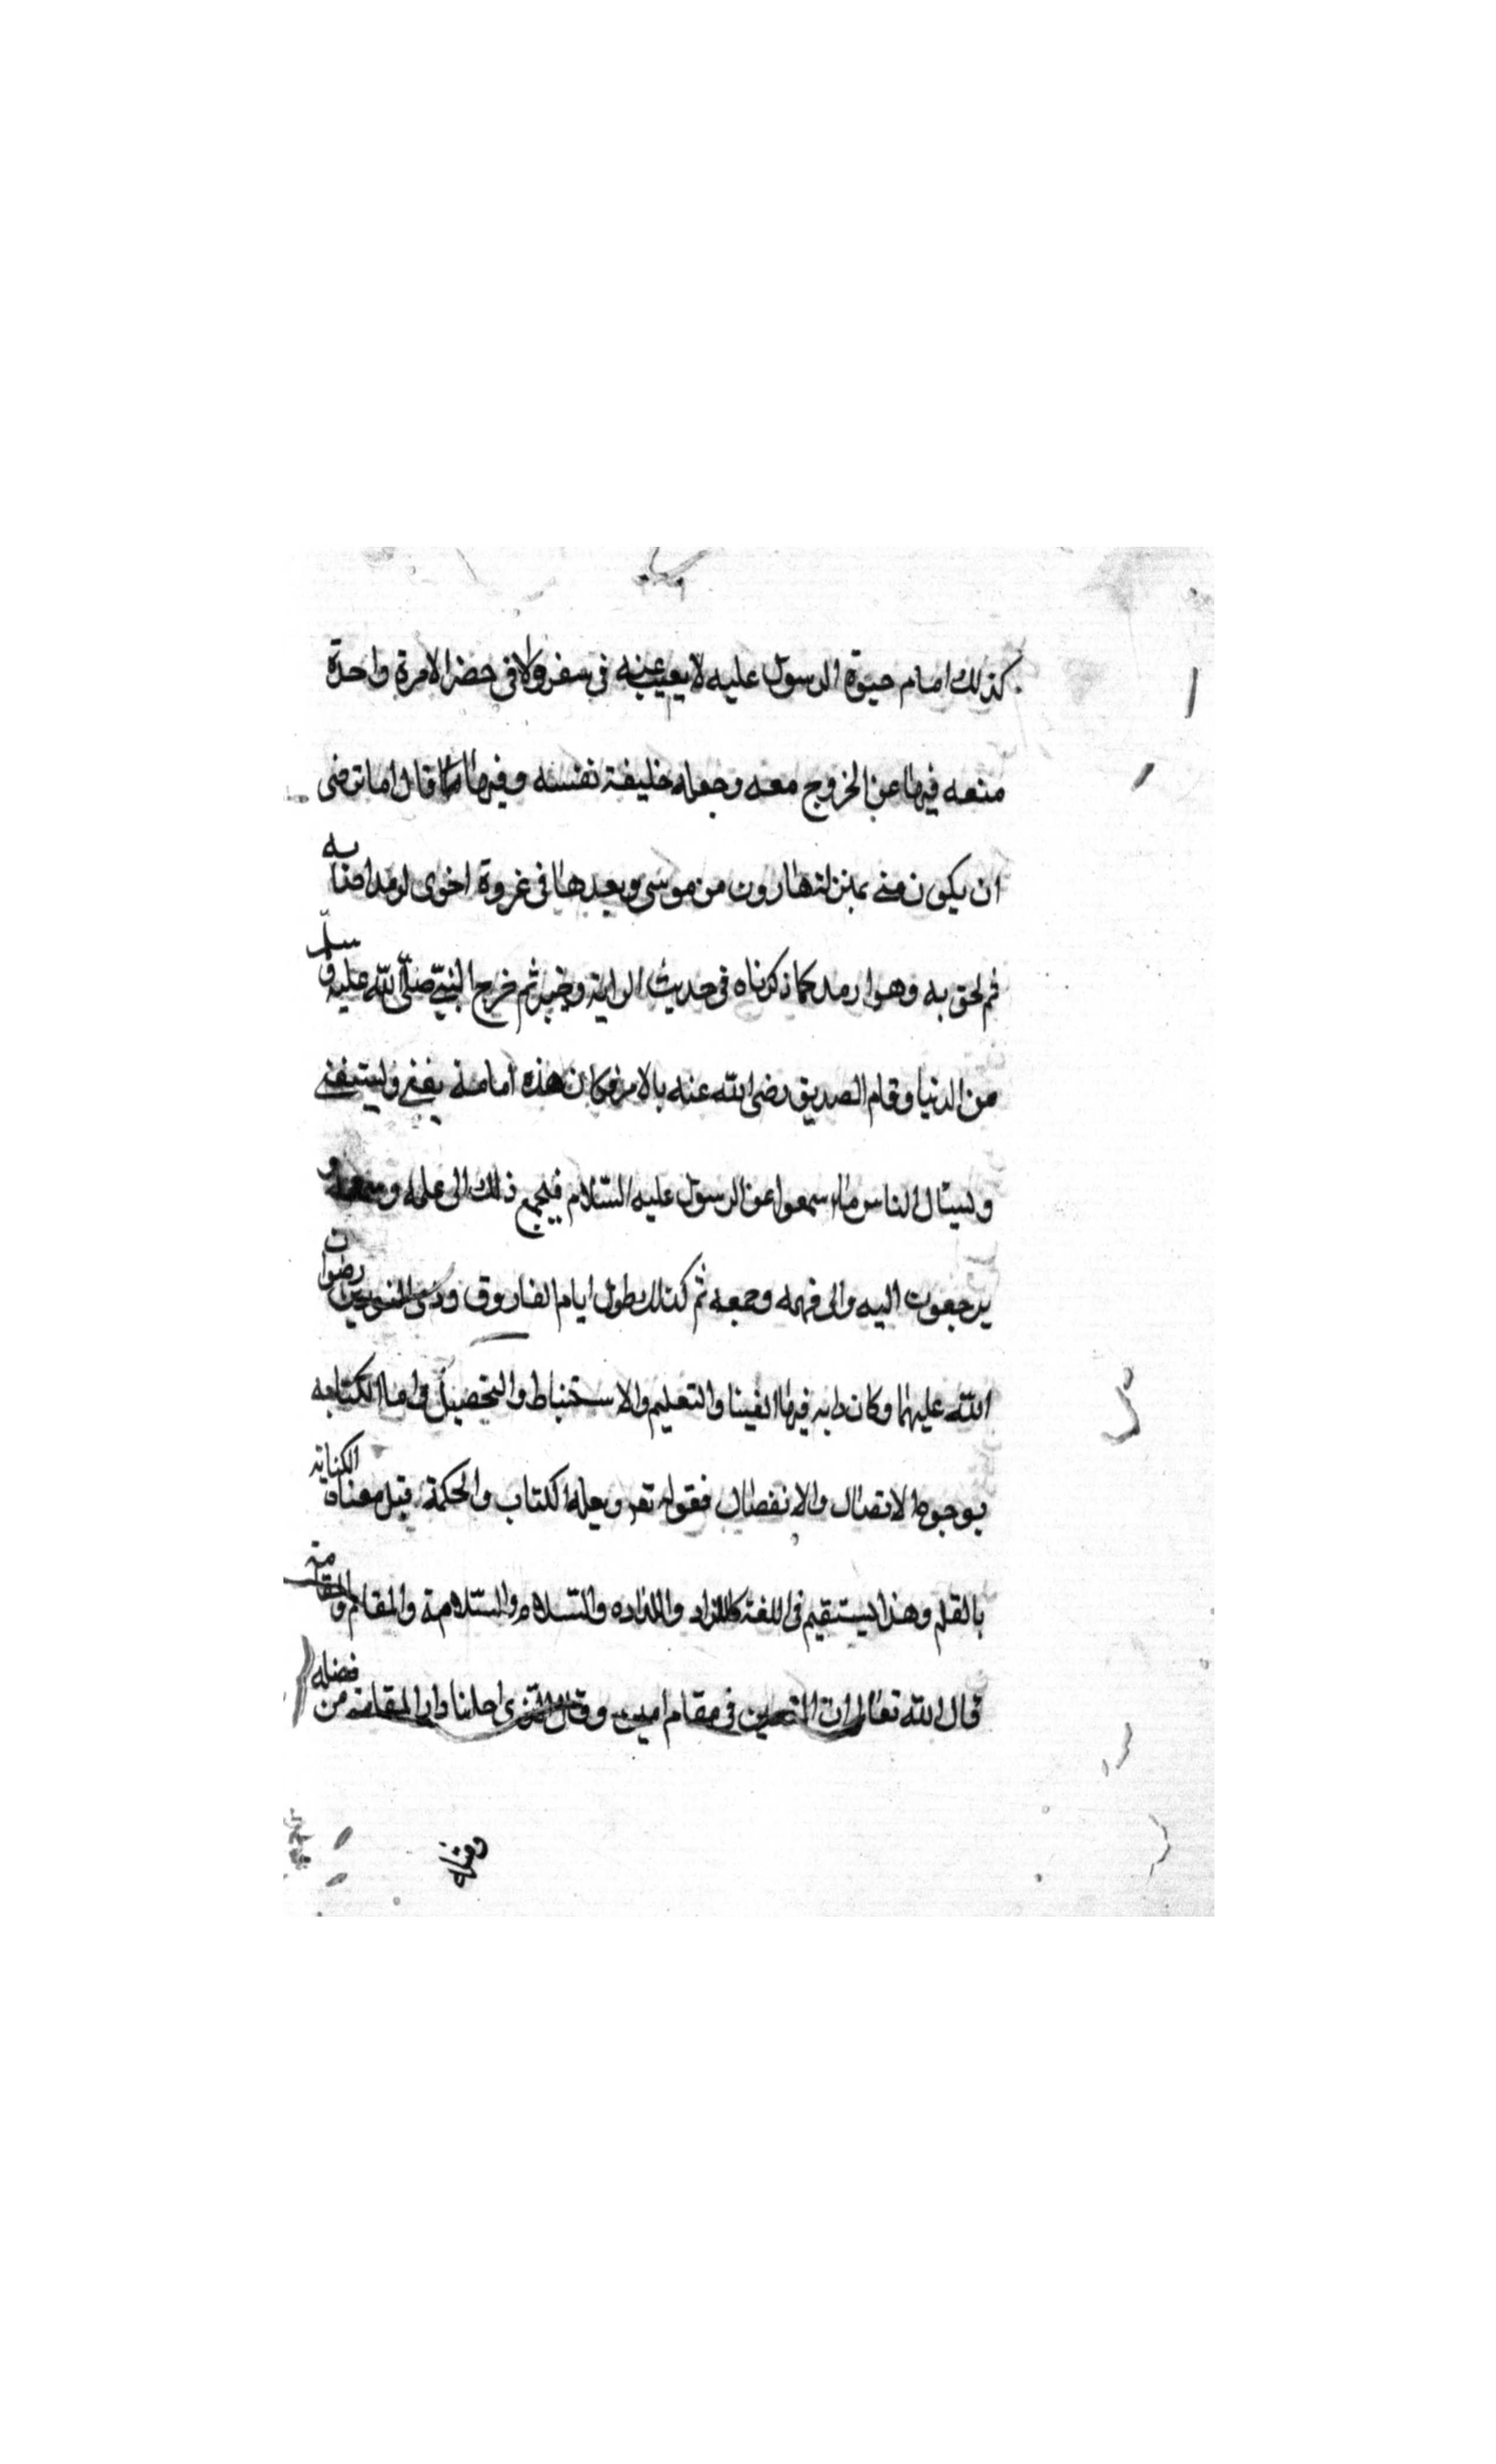 كذلك امام حيوة الرسول عليه لا يغيب عنه فى سفر ولا فى حضر الا مرة واحدة
منعه فيها عن الخروج معه وجعله خليفة نفسه وفيها قال اما ترضى
ان يكون منى بمنزلة هارون من موسى وبعدها فى غزوة اخرى لرمد اصابه
ثم لحق به وهو ارمد كما ذكرناه فى حديث الراية وخيبر ثم خرج النبى صلى الله عليه وسلم
من الدنيا وقام الصديق رضى الله عنه بالامر فكان هذه امامه يفتى ويستفتى
ويسئال الناس ما سمعوا عن الرسول عليه السلام فيجمع ذلك الى علمه و
يرجعون اليه والى فهمه وجمعه ثم كذلك طول ايام الفاروق وذى النورين رضوان
الله عليهما وكان دابه فيها الفتيا والتعليم والاستنباط والتحصيل واما الكتابه
بوجوه الاتصال والانفصال فقوله تعـ ويعلمه الكتاب والحكمة قيل معناه الكتابة
بالقلم وهذا يستقيم فى اللغة كاللذاذ واللذاذه والسلام والسلامة والمقام والمقامة
قال الله تعالى ان المتقين فى مقام امين وقال الذى احلنا دار المقامة من فضله